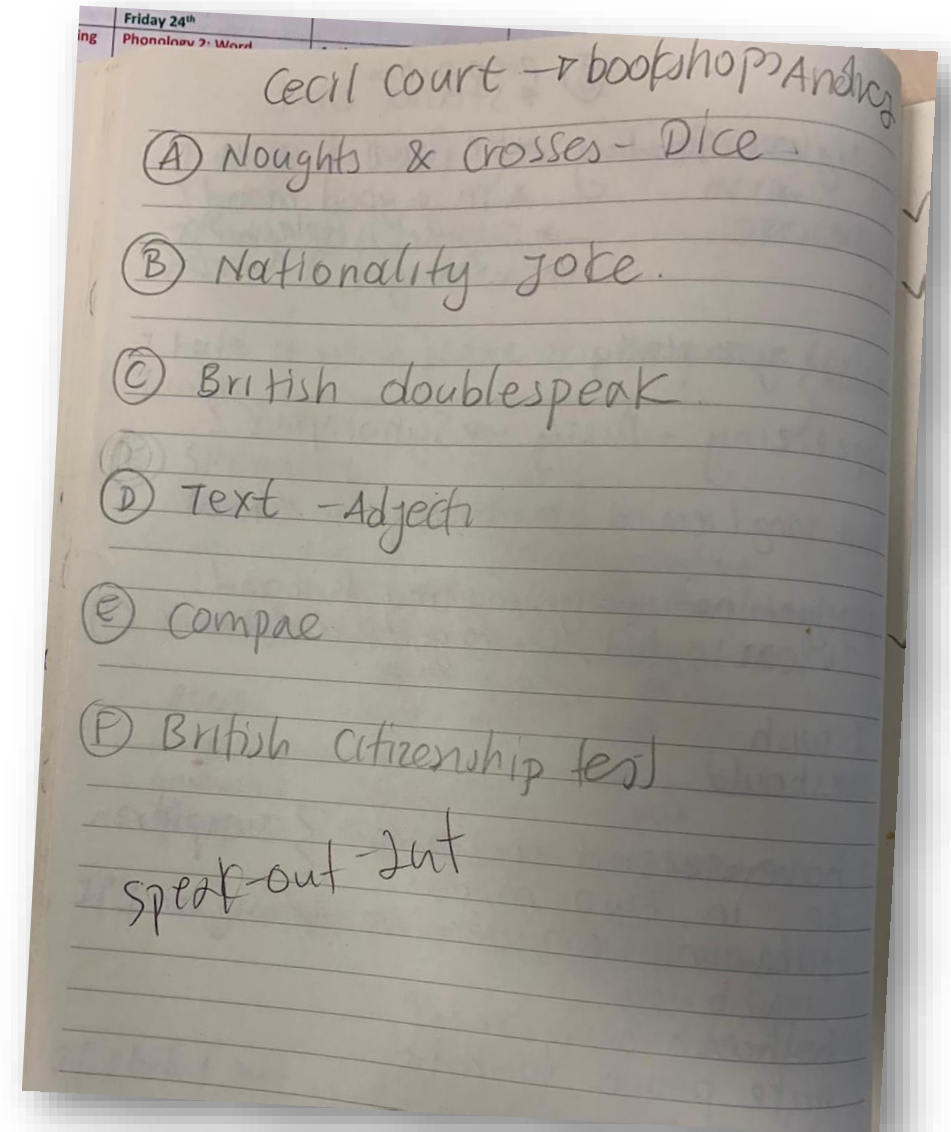 Friday 24th
ing Phonology 2: Word
Cecil Court → bookshops
(A) Noughts & Crosses - Dice.
(B) Nationality joke.
(C) British doublespeak.
(D) Text - Adjecti
(E) Compae
(F) British Citizenship test
Speak-out-Int